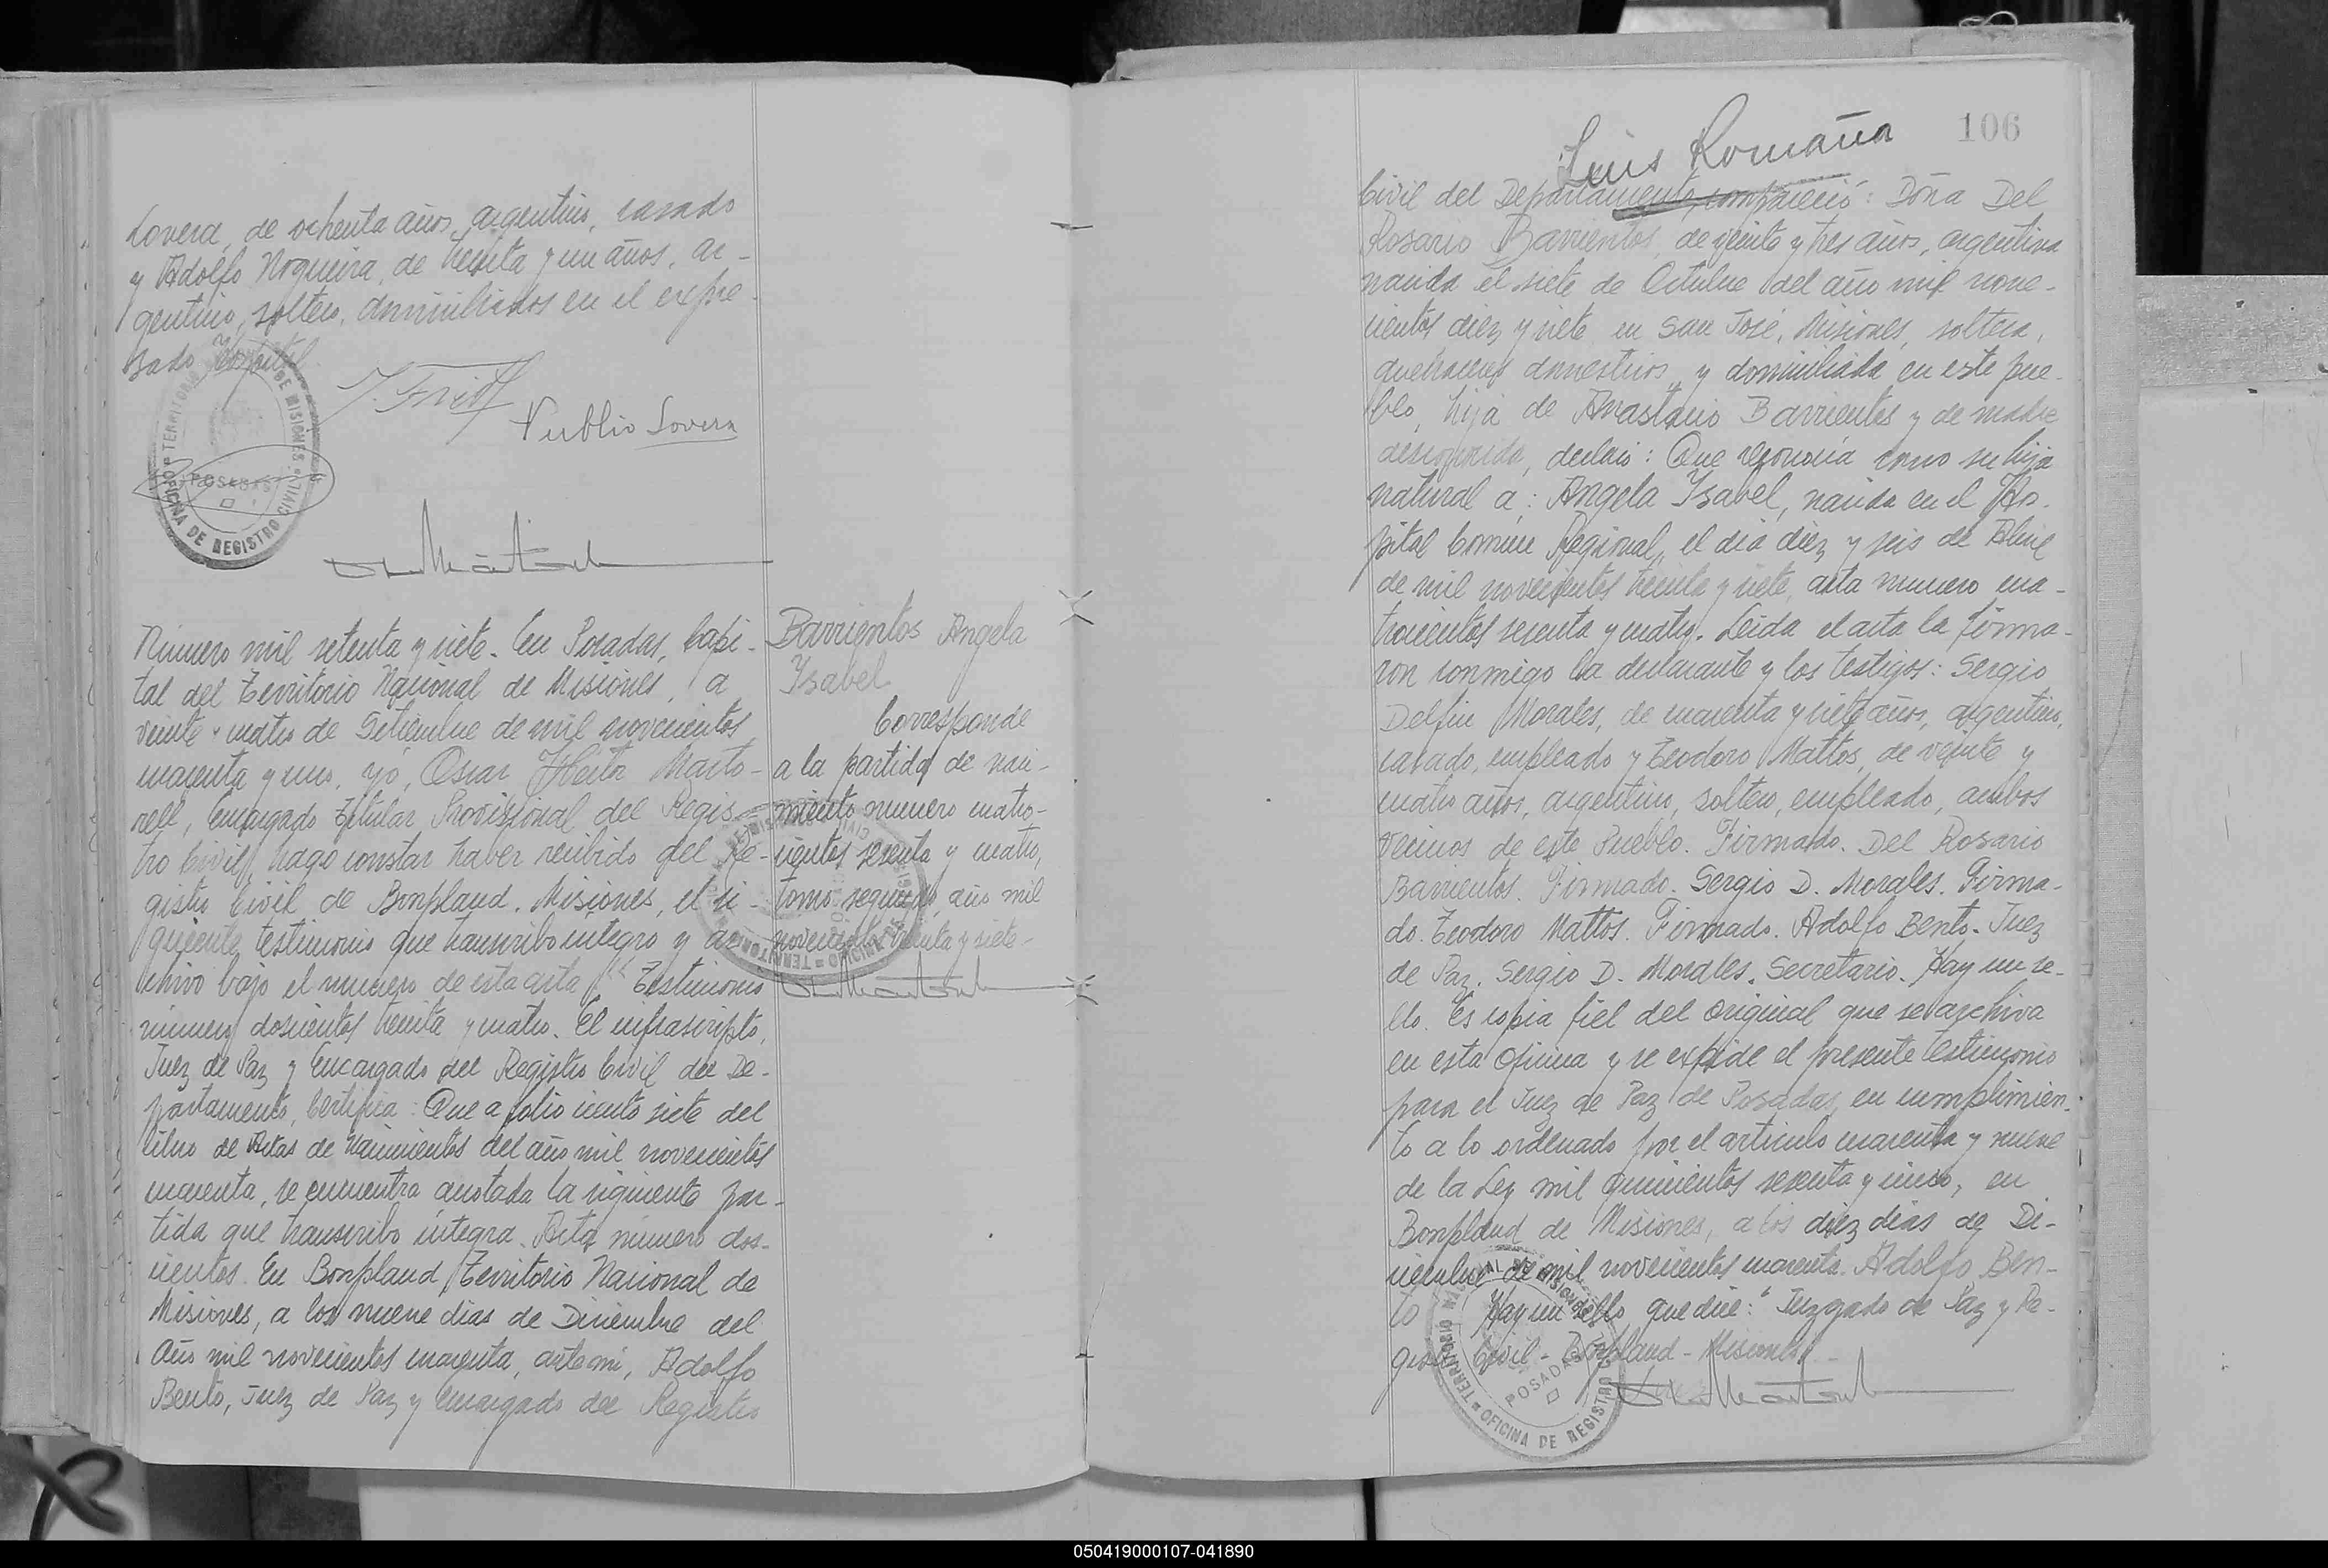 Lovera, de ochenta años, argentino, casado
y Adolfo Nogueira, de treinta y un años, ar-
gentino, soltero, domiciliados en el expre-
sado Hospital
Publio Lovera
TERRITORIO DE MISIONES
POSADAS
OFICINA DE REGISTRO CIVIL
Número mil setenta y siete. En Posadas, Capi-
tal del Territorio Nacional de Misiones, a
veinte y cuatro de Setiembre de mil novecientos
cuarenta y uno, yo, Oscar Héctor Marto-
rell, Encargado Titular Provisional del Regis-
tro Civil, hago constar haber recibido del Re-
gistro Civil de Bonpland, Misiones, el si-
guiente testimonio que transcribo integro y ar-
chivo bajo el número de esta acta: "Testimonio
número doscientos treinta y cuatro. El infrascripto,
Juez de Paz y Encargado del Registro Civil del De-
partamento, Certifica: Que a folio ciento siete del
libro de Actas de Nacimientos del año mil novecientos
cuarenta, se encuentra anotada la siguiente par-
tida que transcribo íntegra. Acta número dos-
cientos. En Bonpland, Territorio Nacional de
Misiones, a los nueve días de Diciembre del
Año mil novecientos cuarenta, ante mi, Adolfo
Bento, Juez de Paz y Encargado del Registro
Barrientos Angela
Ysabel
Corresponde
a la partida de naci-
miento número cuatro-
cientos sesenta y cuatro,
tomo segundo, año mil
novecientos treinta y siete-
106
Luis Romaña
Civil del Departamento, compareció: Doña Del
Rosario Barrientos, de veinte y tres años, argentina
nacida el siete de Octubre del año mil nove-
cientos diez y siete en San José, Misiones, soltera,
quehaceres domesticos, y domiciliada en este pue-
blo, hija de Anastacio Barrientos y de madre
desconocida, declaró: Que reconocía como su hija
natural a: Angela Ysabel, nacida en el Hos-
pital Común Regional, el día diez y seis de Abril
de mil novecientos treinta y siete, acta número cua-
trocientos sesenta y cuatro. Leida el acta la firma-
ron conmigo la declarante y los testigos: Sergio
Delfin Morales, de cuarenta y siete años, argentino,
casado, empleado y Teodoro Mattos, de veinte y
cuatro años, argentino, soltero, empleado, ambos
vecinos de este Pueblo. Firmado. Del Rosario
Barrientos. Firmado. Sergio D. Morales. Firma-
do. Teodoro Mattos. Firmado. Adolfo Bento. Juez
de Paz. Sergio D. Morales. Secretario. Hay un se-
llo. Es copia fiel del original que se archiva
en esta Oficina y se expide el presente testimonio
para el Juez de Paz de Posadas, en cumplimien-
to a lo ordenado por el artículo cuarenta y nueve
de la Ley mil quinientos sesenta y cinco, en
Bonpland de Misiones, a los diez días de Di-
ciembre de mil novecientos cuarenta. Adolfo Ben-
to Hay un sello que dice: "Juzgado de Paz y Re-
gistro Civil - Bonpland - Misiones"
POSADAS
OFICINA DE REGISTRO
050419000107-041890